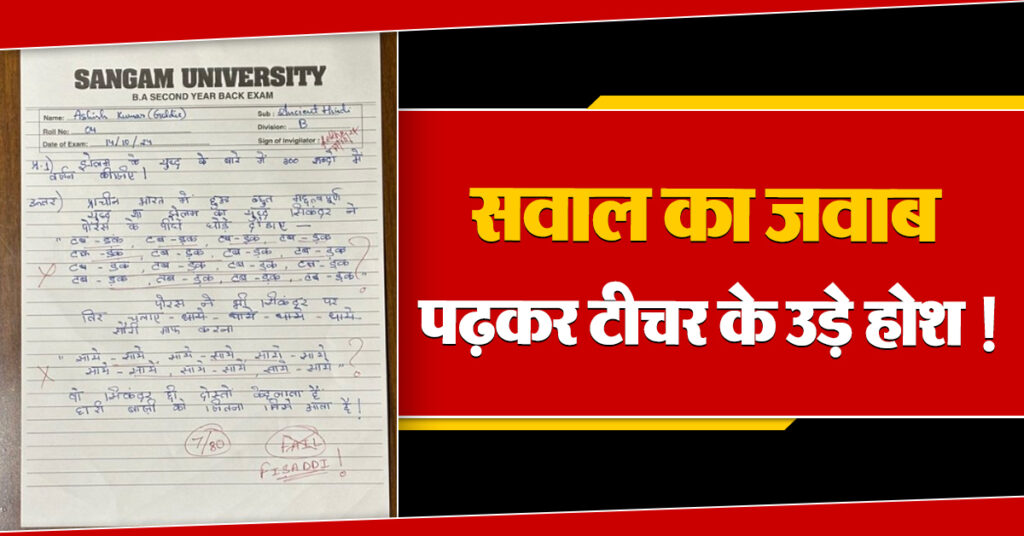 SANGAM UNIVERSITY
B.A SECOND YEAR BACK EXAM
Name: Ashish Kumar (Guddu) Sub: Ancient Hindi
Roll No: 04 Division: B
Date of Exam: 14/10/24 Sign of Invigilator:
प्र.1) झेलम के युद्ध के बारे में 300 शब्दों में
वर्णन कीजिए।
उत्तर) प्राचीन भारत में हुआ बहुत महत्वपूर्ण
युद्ध था झेलम का युद्ध सिकंदर ने
पोरस के पीछे घोड़े दौडाए —
" टब - ड़क, टब - ड़क, टब - ड़क, टब - ड़क
टब - ड़क, टब - ड़क, टब - ड़क, टब - ड़क
टब - ड़क, टब - ड़क, टब - ड़क, टब - ड़क
टब - ड़क, टब - ड़क, टब - ड़क, टब - ड़क "
पोरस ने भी सिकंदर पर
तिर चलाए - धाये - धाये - धाये - धाये
सॉरी माफ करना
" साये - साये, साये - साये, साये - साये
साये - साये, साये - साये, साये - साये "
वो सिकंदर ही दोस्तो केहलाता है
हारी बाज़ी को जितना जिसे आता है!
7/80 FAIL
FISADDI!
सवाल का जवाब
पढ़कर टीचर के उड़े होश !